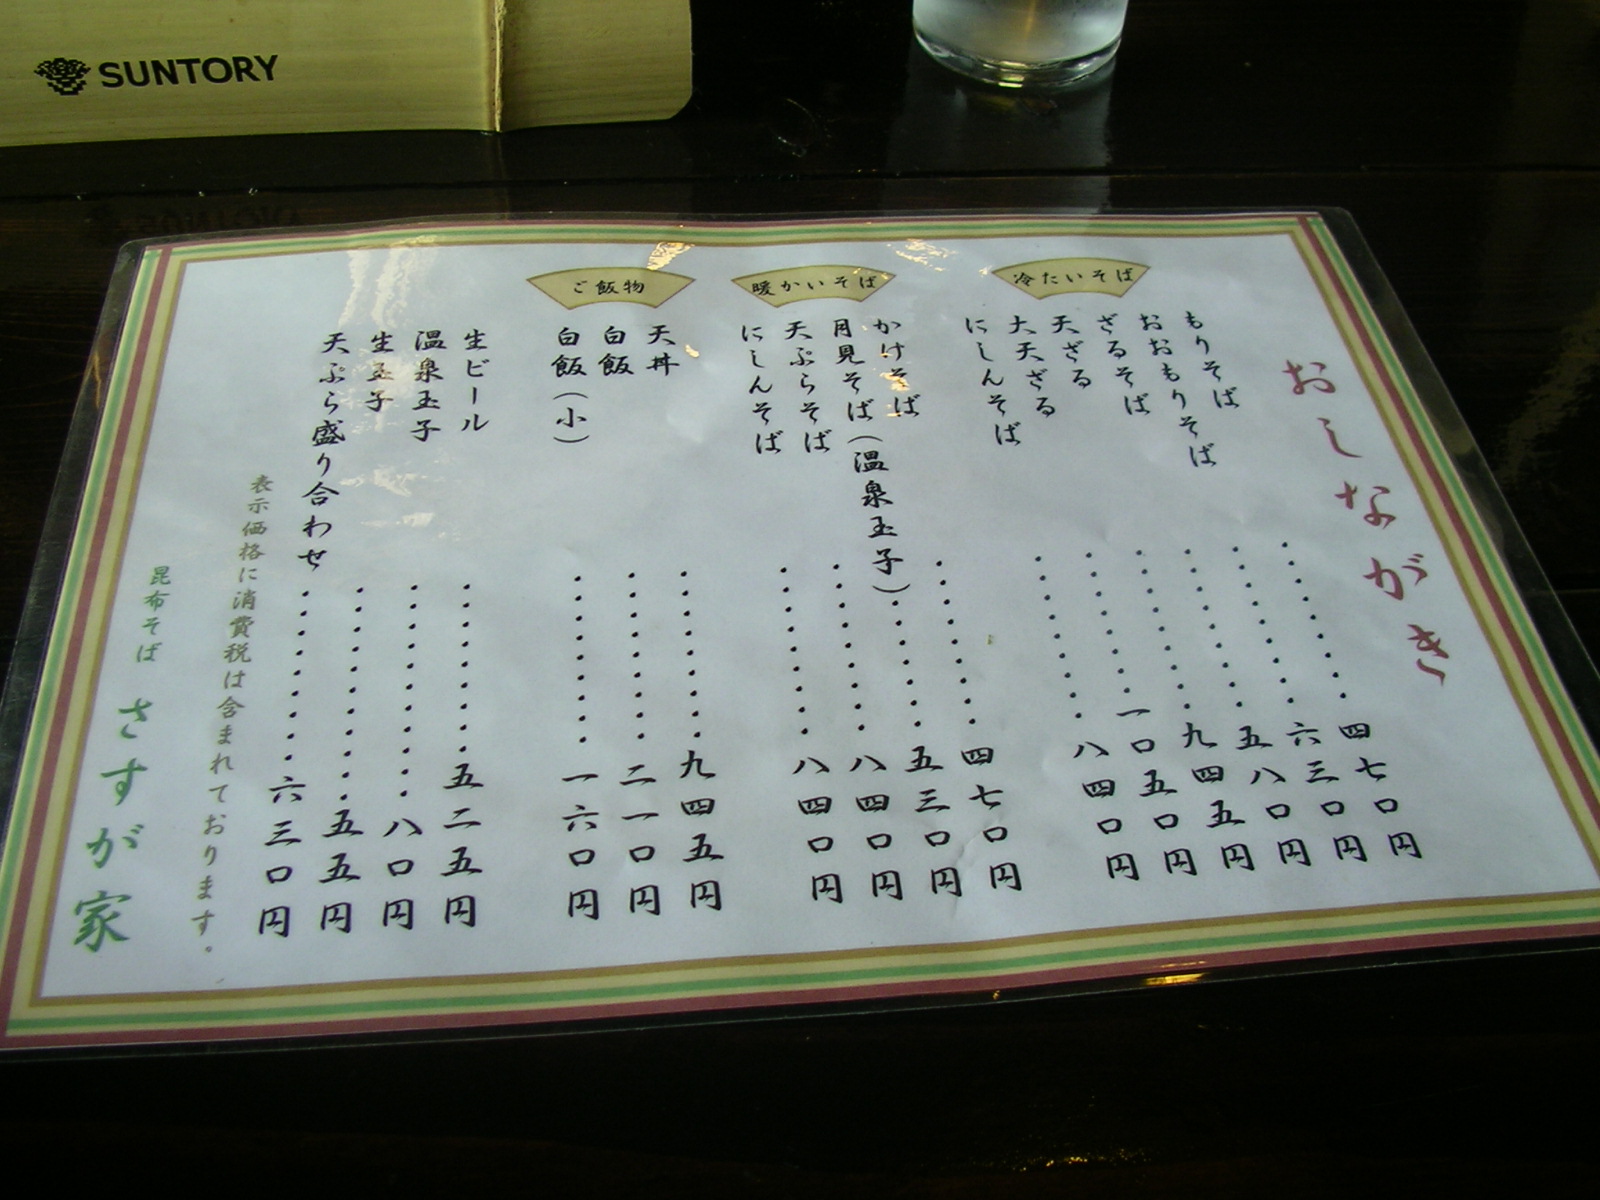 SUNTORY
おしながき
冷たいそば
もりそば・・・・・・・・四七〇円
おおもりそば・・・・・・・・六三〇円
ざるそば・・・・・・・・五八〇円
天ざる・・・・・・・・九四五円
大天ざる・・・・・・・一〇五〇円
にしんそば・・・・・・・・八四〇円
暖かいそば
かけそば・・・・・・・・四七〇円
月見そば(温泉玉子)・・・・・五三〇円
天ぷらそば・・・・・・・・八四〇円
にしんそば・・・・・・・・八四〇円
ご飯物
天丼・・・・・・・・九四五円
白飯・・・・・・・・二一〇円
白飯(小)・・・・・・・・一六〇円
生ビール・・・・・・・・五二五円
温泉玉子・・・・・・・・・八〇円
生玉子・・・・・・・・・五五円
天ぷら盛り合わせ・・・・・・・・六三〇円
表示価格に消費税は含まれております。
昆布そば さすが家